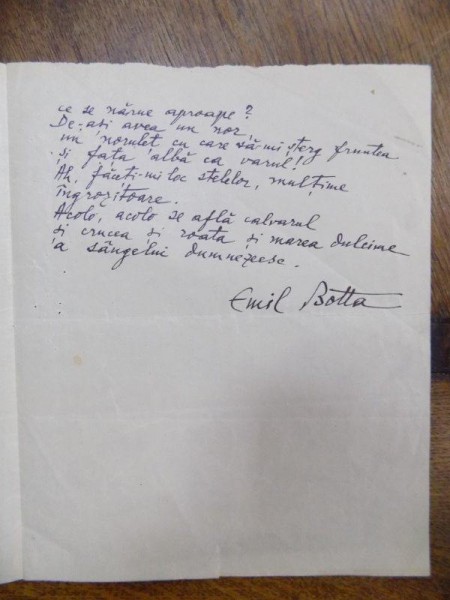 ce se nărue aproape?
De-ași avea un nor,
un noruleț cu care să-mi șterg fruntea
și fața albă ca varul!
Ah, făceți-mi loc stelelor, mulțime
îngrozitoare.
Acolo, acolo se află calvarul
și crucea și roata și marea dulcime
a sângelui dumnezeesc.
Emil Botta